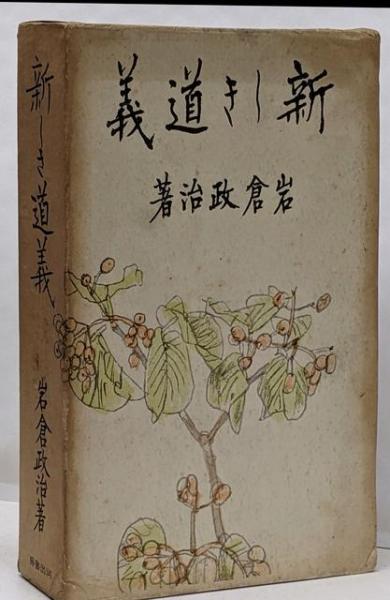 新しき道義
岩倉政治著
新しき道義
岩倉政治著